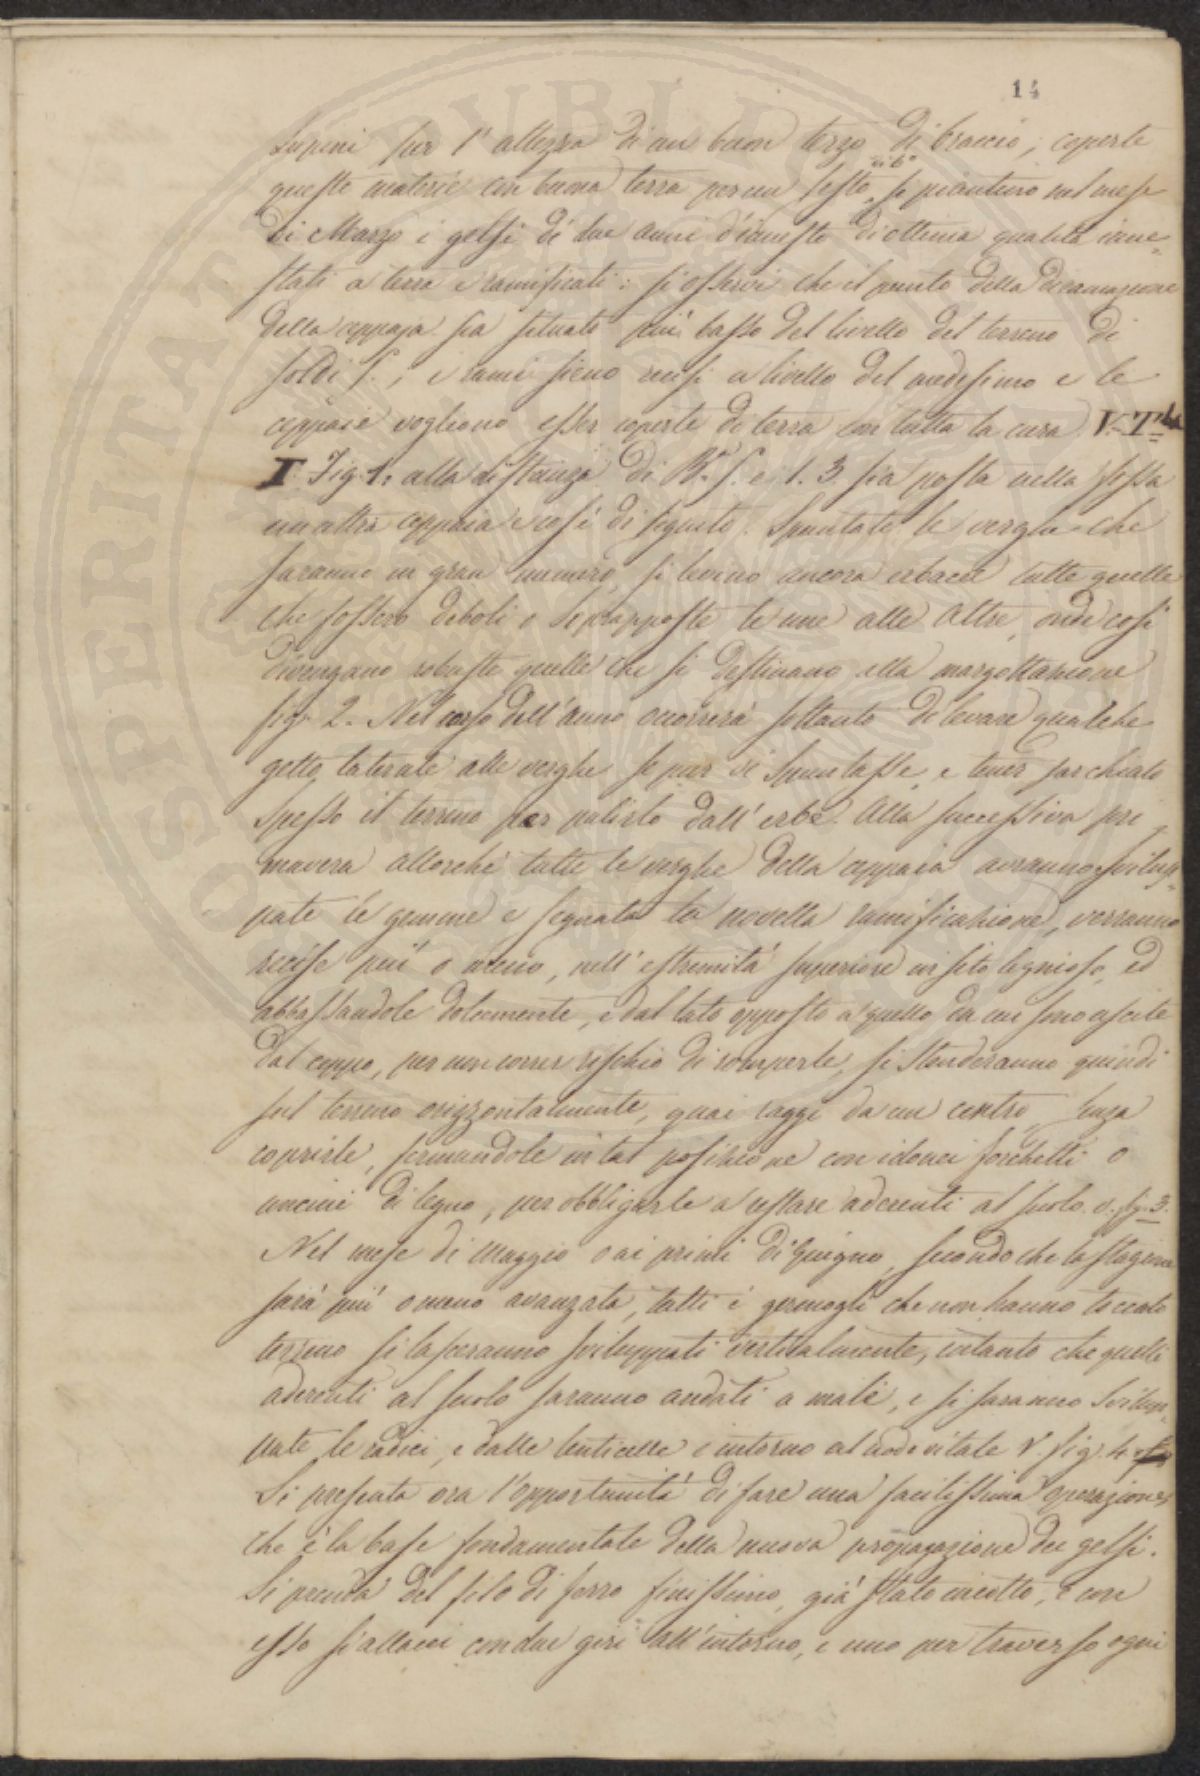 14
lupini per l'altezza di un buon terzo di braccio; coperte
queste materie con buona terra per un sesto di b.o si piantino nel mese
di Marzo i gelsi di due anni d'innesto di ottima qualità inne=
stati a terra e ramificati: si osservi che il punto della diramazione
della ceppaja sia situato più basso del livello del terreno di
soldi 5.; i rami sieno recisi a livello del medesimo e le
ceppaie vogliono esser coperte di terra con tutta la cura V. T.la
I Fig. 1. alla distanza di B.a 5. e 1. 3 sia posta nella fossa
un altra ceppaia e così di seguito. Spuntate le verghe che
saranno in gran numero, si levino ancora erbacee tutte quelle
che fossero deboli o soprapposte le une alle altre, onde così
divengano robuste quelle che si destinano alla margottazione
fig. 2. Nel corso dell'anno occorrerà soltanto di levare qualche
getto laterale alle verghe se pur vi spuntasse, e tener sarchiato
spesso il terreno per pulirlo dall'erbe. Alla successiva pri=
mavera allorchè tutte le verghe della ceppaia avranno svilup=
pate le gemme e segnata la novella ramificazione, verranno
recise più o meno, nell'estremità superiore in sito legnioso, ed
abbassandole dolcemente, e dal lato opposto a quello da cui sono uscite
dal ceppo, per non correr rischio di romperle, si stenderanno quindi
sul terreno orizzontalmente, quai raggi da un centro, senza
coprirle, fermandole in tal posizione con idonei forchetti o
uncini di legno, per obbligarle a restare aderenti al suolo. v. fig. 3.
Nel mese di Maggio o ai primi di Giugno, secondo che la stagione
sarà più o meno avanzata, tutti i germogli che non hanno toccato
terreno si lasceranno sviluppati verticalmente, intanto che quelli
aderenti al suolo saranno andati a male, e si saranno svilup=
pate le radici, e dalle lenticelle e intorno al nodo vitale V. fig. 4
Si presenta ora l'opportunità di fare una facilissima operazione,
che è la base fondamentale della nuova propagazione dei gelsi.
Si prenda del filo di ferro finissimo, già stato ricotto, e con
esso si allacci con due giri all'intorno, e uno per traverso ogni